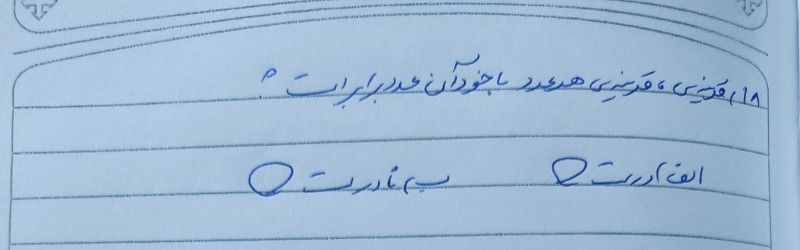 ۱۸، قرینه‌ی، قرینه‌ی هر عدد با خود آن عدد برابر است ؟
الف) درست ب) نادرست